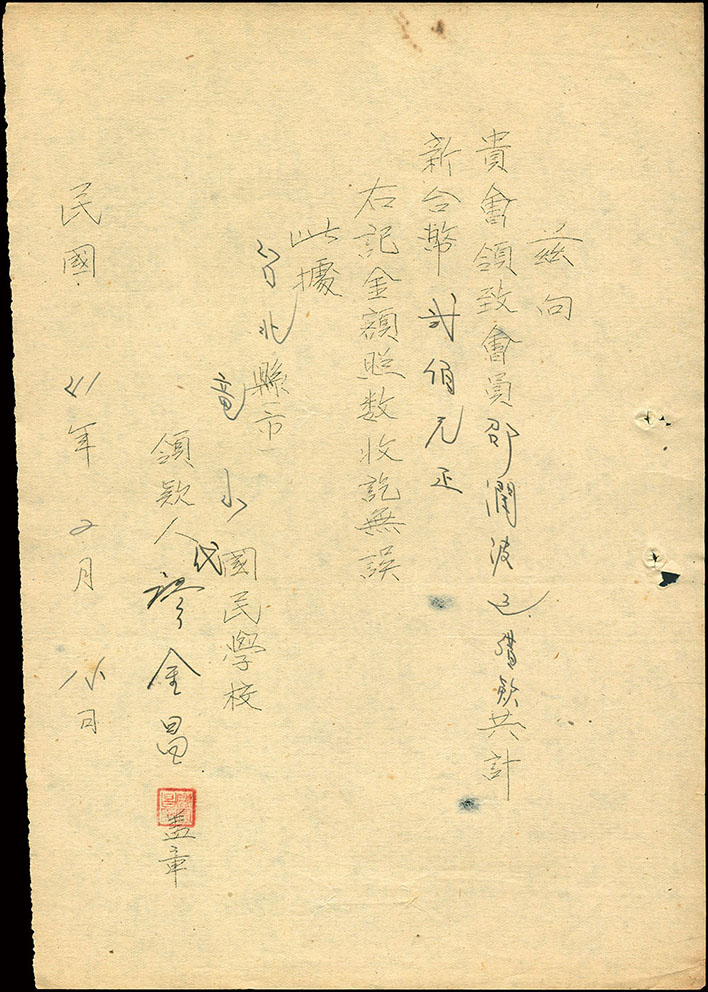 茲向
貴會領致會員邵潤波之購欵共計
新台幣貳佰元正
右記金額照数收訖無誤
此據
台北縣市
竜山國民學校
領款人代廖金昌蓋章
民國41年2月18日